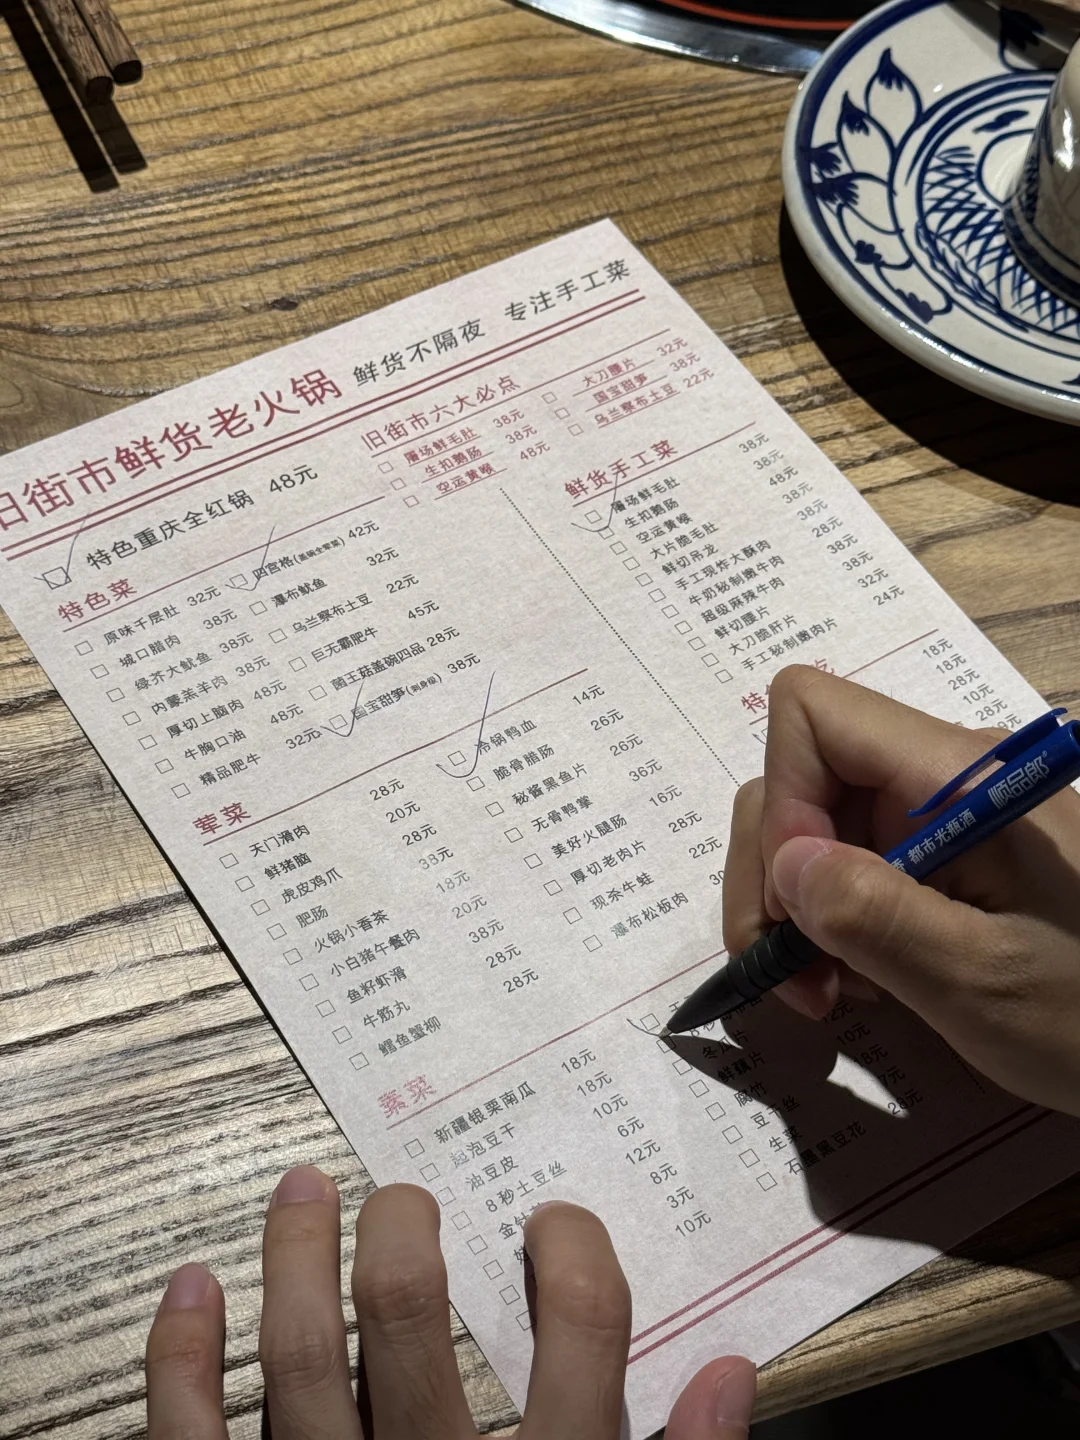 旧街市鲜货老火锅 鲜货不隔夜 专注手工菜
特色重庆全红锅 48元
旧街市六大必点
屠场鲜毛肚 38元
生扣鹅肠 38元
空运黄喉 48元
大刀腰片 32元
国宝甜笋 38元
乌兰察布土豆 22元
特色菜
原味千层肚 32元
城口腊肉 38元
绿芥大鱿鱼 38元
内蒙羔羊肉 38元
厚切上脑肉 48元
牛胸口油 48元
精品肥牛 32元
四宫格(盖碗全荤菜) 42元
瀑布鱿鱼 32元
乌兰察布土豆 22元
巨无霸肥牛 45元
菌王菇盖碗四品 28元
国宝甜笋(刺身级) 38元
鲜货手工菜
屠场鲜毛肚 38元
生扣鹅肠 38元
空运黄喉 48元
大片脆毛肚 38元
鲜切吊龙 38元
手工现炸大酥肉 28元
牛奶秘制嫩牛肉 38元
超级麻辣牛肉 38元
鲜切腰片 32元
大刀脆肝片 24元
手工秘制嫩肉片
荤菜
天门滑肉 28元
鲜猪脑 20元
虎皮鸡爪 28元
肥肠 38元
火锅小香茶 18元
小白猪午餐肉 20元
鱼籽虾滑 38元
牛筋丸 28元
鳕鱼蟹柳 28元
冷锅鸭血 14元
脆骨腊肠 26元
秘酱黑鱼片 26元
无骨鸭掌 36元
美好火腿肠 16元
厚切老肉片 28元
现杀牛蛙 22元
瀑布松板肉
特
吃
18元
18元
28元
10元
28元
素菜
新疆银栗南瓜 18元
超泡豆干 18元
油豆皮 10元
8秒土豆丝 6元
金针 12元
8元
3元
10元
冬瓜片
鲜藕片
腐竹 10元
豆干丝
生菜
石磨黑豆花
顺品郎®
都市光瓶酒